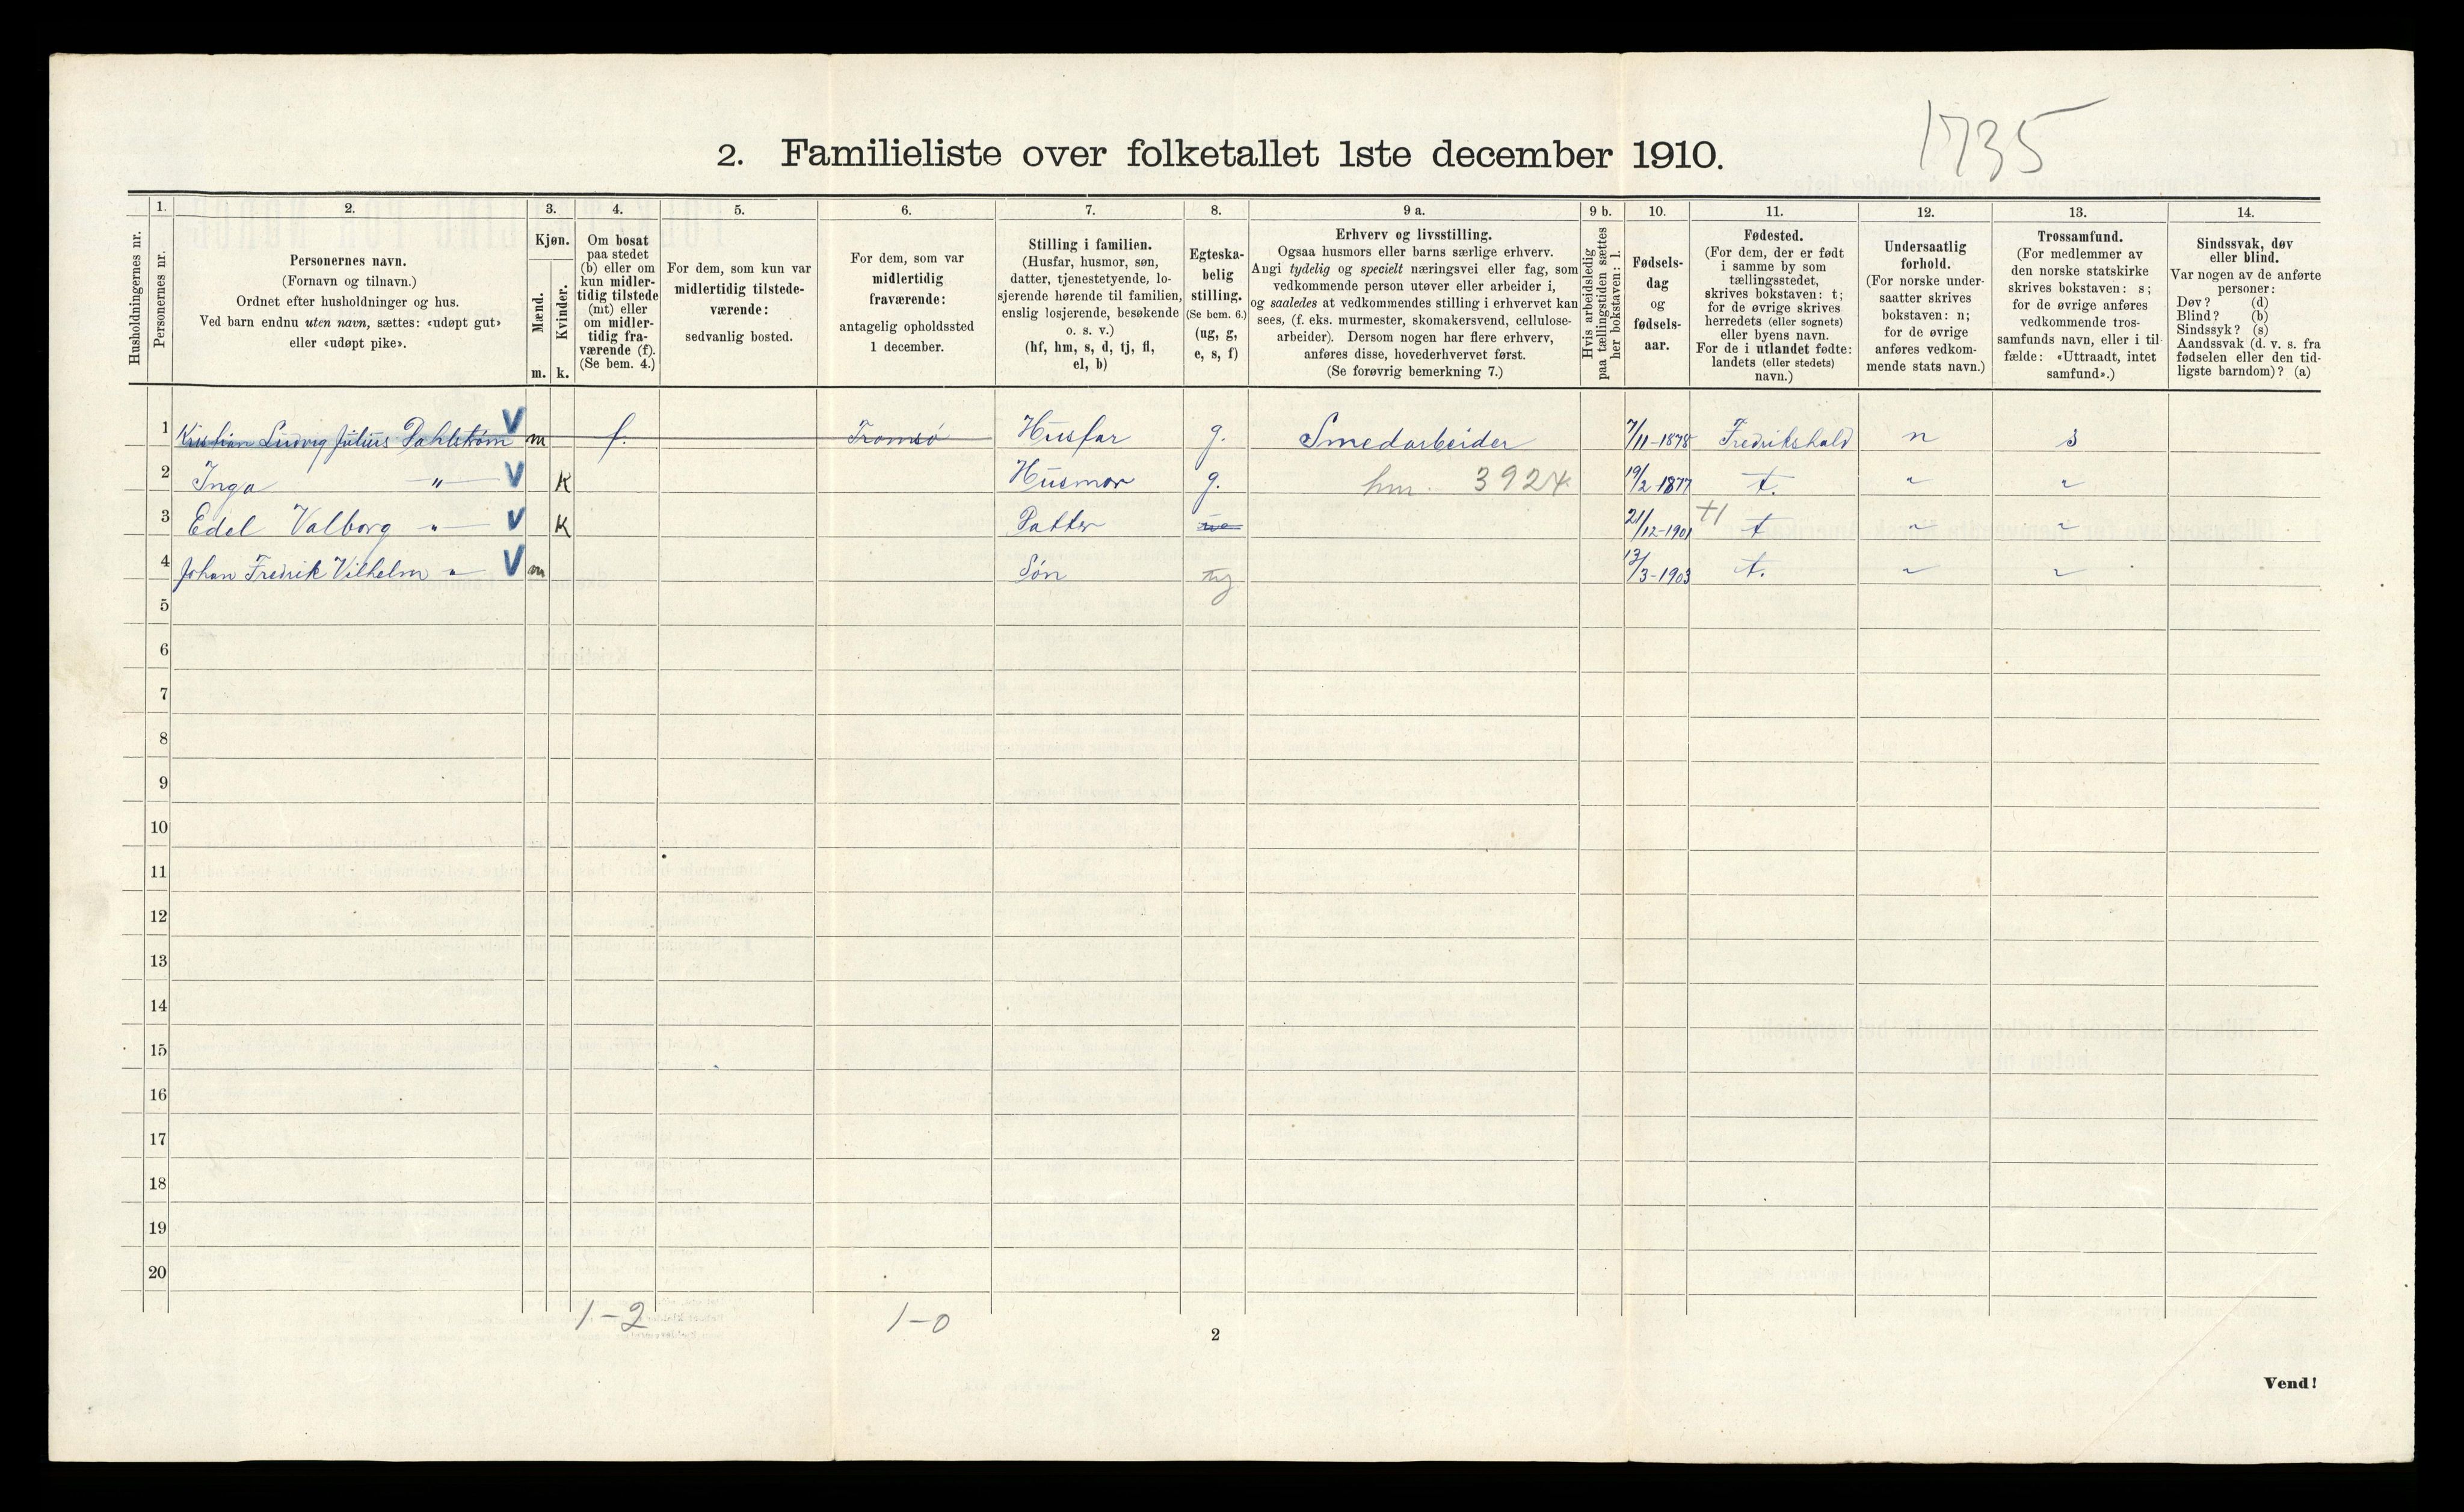 1735
2. Familieliste over folketallet 1ste december 1910.
Husholdningernes nr.
1.
Personernes nr.
2.
Personernes navn.
(Fornavn og tilnavn.)
Ordnet efter husholdninger og hus.
Ved barn endnu uten navn, sættes: «udøpt gut»
eller «udøpt pike».
3.
Kjøn.
Mænd.
Kvinder.
m. k.
4.
Om bosat
paa stedet
(b) eller om
kun midler-
tidig tilstede
(mt) eller
om midler-
tidig fra-
værende (f).
(Se bem. 4.)
5.
For dem, som kun var
midlertidig tilstede-
værende:
sedvanlig bosted.
6.
For dem, som var
midlertidig
fraværende:
antagelig opholdssted
1 december.
7.
Stilling i familien.
(Husfar, husmor, søn,
datter, tjenestetyende, lo-
sjerende hørende til familien,
enslig losjerende, besøkende
o. s. v.)
(hf, hm, s, d, tj, fl,
el, b)
8.
Egteska-
belig
stilling.
(Se bem. 6.)
(ug, g,
e, s, f)
9 a.
Erhverv og livsstilling.
Ogsaa husmors eller barns særlige erhverv.
Angi tydelig og specielt næringsvei eller fag, som
vedkommende person utøver eller arbeider i,
og saaledes at vedkommendes stilling i erhvervet kan
sees, (f. eks. murmester, skomakersvend, cellulose-
arbeider). Dersom nogen har flere erhverv,
anføres disse, hovederhvervet først.
(Se forøvrig bemerkning 7.)
9 b.
Hvis arbeidsledig
paa tællingstiden sættes
her bokstaven: l.
10.
Fødsels-
dag
og
fødsels-
aar.
11.
Fødested.
(For dem, der er født
i samme by som
tællingsstedet,
skrives bokstaven: t;
for de øvrige skrives
herredets (eller sognets)
eller byens navn.
For de i utlandet fødte:
landets (eller stedets)
navn.)
12.
Undersaatlig
forhold.
(For norske under-
saatter skrives
bokstaven: n;
for de øvrige
anføres vedkom-
mende stats navn.)
13.
Trossamfund.
(For medlemmer av
den norske statskirke
skrives bokstaven: s;
for de øvrige anføres
vedkommende tros-
samfunds navn, eller i til-
fælde: «Uttraadt, intet
samfund».)
14.
Sindssvak, døv
eller blind.
Var nogen av de anførte
personer:
Døv? (d)
Blind? (b)
Sindssyk? (s)
Aandssvak (d. v. s. fra
fødselen eller den tid-
ligste barndom)? (a)
1 Kristian Ludvig Julius Dahlstrøm V m f. Tromsø Husfar g. Smedarbeider 7/11-1878 Fredrikshald n s
2 Inga " V K Husmor g. hm. 3924 19/2-1877 t. " "
3 Edel Valborg " V K Datter 21/12-1901 t " "
4 Johan Fredrik Vilhelm " V m Søn ug 13/3-1903 t. " "
5
6
7
8
9
10
11
12
13
14
15
16
17
18
19
20
1-2 1-0
2
Vend!